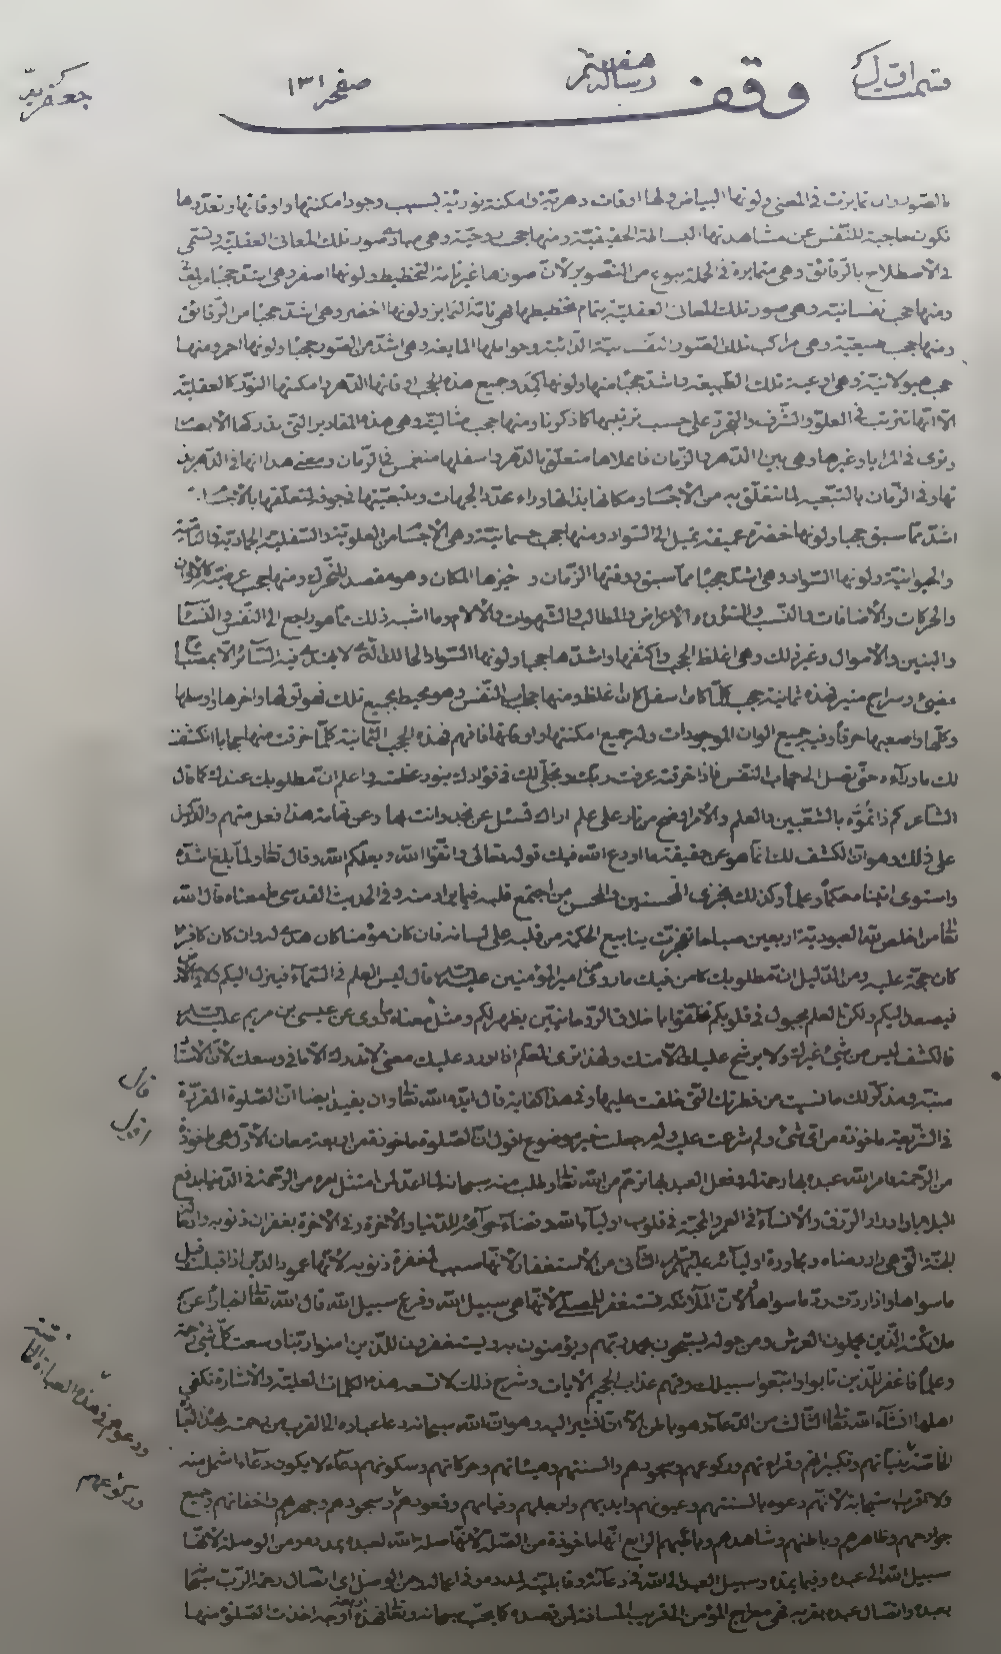 قسمت اول
رساله هفتم
وقف
صفحه ١٣١
بالصور وان تمايزت في المعنى ولونها البياض ولها اوقات دهرية وامكنة نورية بسبب وجود امكنتها واوقاتها وتعددها
تكون حاجبة للنفس عن مشاهدتها البساطة الحقيقية ومنها حجب روحية وهي مبادى صور تلك المعاني العقلية وتسمى
في الاصطلاح بالرقائق وهي متمايزة في الجملة بنوع من التصوير لان صورها غير تامة التخطيط ولونها اصفر وهي اشد حجبا
ومنها حجب نفسانية وهي صور تلك المعاني العقلية بتمام تخطيطها فهي تامة التمايز ولونها اخضر وهي اشد حجبا من الرقائق
ومنها حجب طبيعية وهي مراكب تلك الصور النفسية الذاتية وحواملها المايعة وهي اشد من الصور حجبا ولونها احمر ومنها
حجب هيولانية وهي اوعية تلك الطبيعة واشد حجبا منها ولونها كمد وجميع هذه الحجب اوقاتها الدهر وامكنتها النور كالعقلية
الا انها تترتب في العلو والشرف والقرب على حسب ترتيبها كما ذكرنا ومنها حجب مثالية وهي هذه المقادير التي تدركها الابصار
وترى في المرايا وغيرها وهي بين الدهر والزمان فاعلاها متعلق بالدهر واسفلها منغمس في الزمان ومعنى هذا انها في الدهر
وفي الزمان بالتبعية لما تتعلق به من الاجسام ومكانها بذاتها وراء محدد الجهات وبتبعيتها في جوفه لتعلقها بالاجسام
اشد مما سبق حجبا ولونها خضرة عميقة تميل الى السواد ومنها حجب جسمانية وهي الاجسام من العلوية والسفلية الجمادية والنباتية
والحيوانية ولونها السواد وهي اشد حجبا مما سبق ووقتها الزمان وحيزها المكان وهو مقصد المتحرك ومنها حجب عرضية كالالوان
والحركات والاضافات والنسب والشؤون والاعراض والمطالب والشهوات والالام وما اشبه ذلك مما هو راجع الى النفس والنساء
والبنين والاموال وغير ذلك وهي اغلظ الحجب واكثفها واشدها حجبا ولونها السواد الحالك الذي لا يهتدى فيه السائر الا بمصباح
مضيئ وسراج منير فهذه ثمانية حجب كلما كان اسفل كان اغلظ ومنها حجاب النفس وهو محيط بجميع تلك فهو اولها واخرها اوسطها
وكلها واصعبها خرقا وفيه جميع الوان الموجودات وله جميع امكنتها واوقاتها فافهم فهذه الحجب الثمانية كلما خرقت منها حجابا انكشف
لك ما وراءه حتى تصل الى حجاب النفس فاذا خرقته عرفت ربك وتجلى لك في فؤادك بنور عظمته واعلم ان مطلوبك عندك كما قال
الشاعر كم ذا تموه بالشعبين والعلم والامر اوضح من نار على علم اراك تسئل عن نجد وانت بها وعن تهامة هذا فعل متهم والدليل
على ذلك وهو ان الكشف لك انما هو عن حقيقة ما اودع الله فيك قوله تعالى واتقوا الله ويعلمكم الله وقال تعالى ولما بلغ اشده
واستوى اتيناه حكما وعلما وكذلك نجزي المحسنين والمحسن من اجتمع قلبه فيما يراد منه وفي الحديث القدسي ما معناه قال الله
تعالى من اخلص لله العبودية اربعين صباحا تفجرت ينابيع الحكمة من قلبه على لسانه فان كان مؤمنا كان هدى له وان كان كافرا
كان حجة عليه ومن الدليل ان مطلوبك كامن فيك ما روى عن امير المؤمنين عليه السلام قال ليس العلم في السماء فينزل اليكم ولا في الارض
فيصعد اليكم ولكن العلم مجبول في قلوبكم تخلقوا باخلاق الروحانيين يظهر لكم ومثل معناه روى عن عيسى بن مريم عليه السلام
فالكشف ليس من شئ غيرك ولا يرشح عليك الا منك ولهذا ترى المعلم اذا اورد عليك معنى لا تدرك الا ما في وسعك لان الانسان
منبه ومذكر لك ما نسيت من فطرتك التي خلقت عليها وفي هذا كفاية قال ايده الله تعالى وان يفيد ايضا ان الصلوة المقررة
في الشريعة ماخوذة من اى شئ ولم شرعت عليه ولم جعلت خير موضوع اقول ان الصلوة ماخوذة من اربعة معان الاول هي ماخوذة
من الرحمة فامر الله عبده بها رحمة له وفعل العبد لها ترحم من الله تعالى وطلب منه سبحانه لما اعد لمن امتثل امره من الرحمة في الدنيا بدفع
البلايا وادرار الرزق والانساء في العمر والمحبة في قلوب اولياء الله وقضاء حوائجه للدنيا والاخرة وفي الاخرة بغفران ذنوبه وادخاله
الجنة التي هي دار رضاه ومجاورة اوليائه عليهم السلام الثاني من الاستغفار لانها سبب لمغفرة ذنوبه لانها عمود الدين اذا قبلت قبل
ما سواها واذا ردت رد ما سواها ولان الملائكة تستغفر للمصلي لانها هي سبيل الله وفرع سبيل الله قال الله تعالى اخبارا عن
ملائكته الذين يحملون العرش ومن حوله يسبحون بحمد ربهم ويؤمنون به ويستغفرون للذين امنوا ربنا وسعت كل شئ رحمة
وعلما فاغفر للذين تابوا واتبعوا سبيلك وقهم عذاب الجحيم الايات وشرح ذلك لا تسعه هذه الكلمات العلية والاشارة تكفي
اهلها انشاء الله تعالى الثالث من الدعاء وهو باطن الان نشير اليه وهو ان الله سبحانه دعا عباده الى القرب من رحمته بهذا الدعاء
الخاص بنياتهم وتكبيرهم وقراءتهم وركوعهم وسجودهم والسنتهم وهيئاتهم وحركاتهم وسكونهم دعاء لا يكون دعاء اشمل منه
ولا اقرب استجابة لانهم دعوه بالسنتهم وعيونهم وايديهم وارجلهم وقيامهم وقعودهم وسجودهم وجهرهم واخفاتهم وجميع
جوارحهم وظاهرهم وباطنهم وشاهدهم وغائبهم الرابع انها ماخوذة من الصلة لانها صلة الله لعبده بمدده ومن الوصل لانها
سبيل الله الى عبده وفيما يمده وسبيل العبد الى الله في دعائه وقابليته لمدده وفي اعماله ومن الوصل اى اتصال رحمة الرب سبحانه
بعبده واتصال عبده بقربه فهي معراج المؤمن المقرب المسافة لمن قصده كما يحب سبحانه وتعالى فهذه اربعة اوجه اخذت الصلوة منها
قال
اقول
ودعوهم في هذه العبادة
وركوعهم